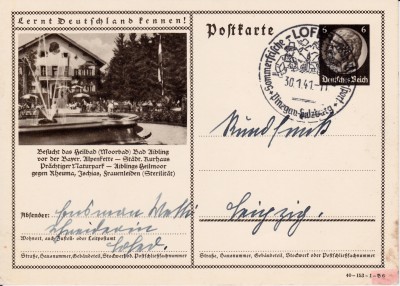 Lernt Deutschland kennen!
Postkarte
6 6
Deutsches Reich
Sommerfrische LOFER
30.1.41
Pinzgau-Salzburg
Besucht das Heilbad (Moorbad) Bad Aibling
vor der Bayer. Alpenkette — Städt. Kurhaus
Prächtiger Naturpark — Aiblings Heilmoor
gegen Rheuma, Ischias, Frauenleiden (Sterilität)
Absender:
Schneiderin
Lofer
Wohnort, auch Zustell- oder Leitpostamt
Straße, Hausnummer, Gebäudeteil, Stockwerk od. Postschließfachnummer
Rundfunk
Leipzig.
Straße, Hausnummer, Gebäudeteil, Stockwerk oder Postschließfachnummer